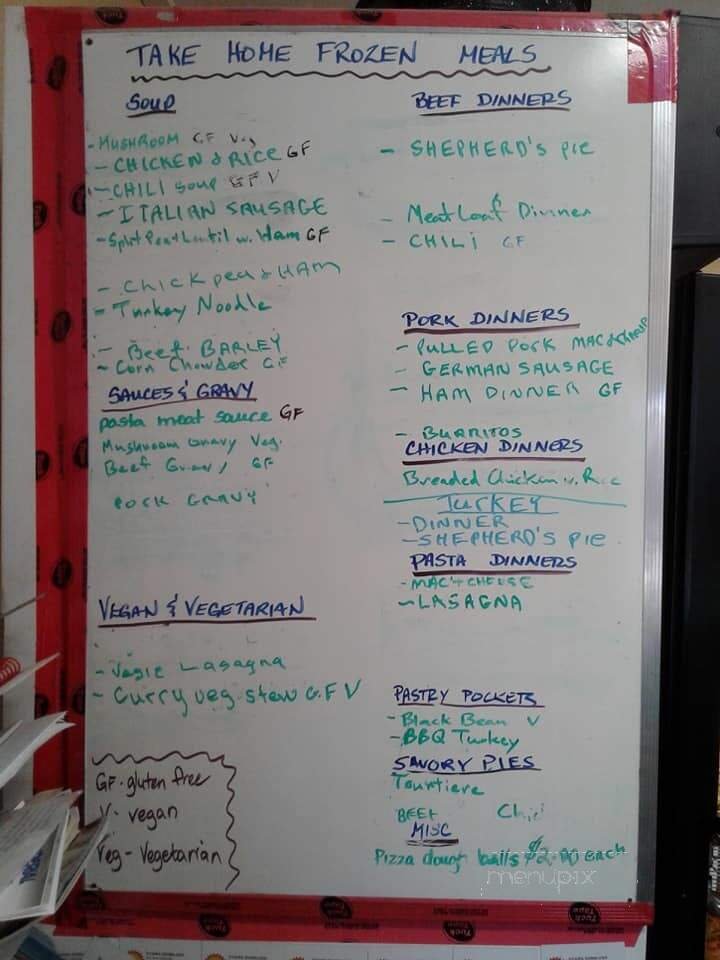 TAKE HOME FROZEN MEALS
SOUP
- MUSHROOM GF Veg
- CHICKEN & RICE GF
- CHILI SOUP GF V
- ITALIAN SAUSAGE
- Split Pea & Lentil w. Ham GF
- Chick pea & HAM
- Turkey Noodle
- Beef BARLEY
- Corn Chowder GF
SAUCES & GRAVY
pasta meat sauce GF
Mushroom Gravy Veg.
Beef Gravy GF
PORK GRAVY
VEGAN & VEGETARIAN
- Vegie Lasagna
- Curry veg stew G.F V
GF - gluten free
V - vegan
Veg - Vegetarian
BEEF DINNERS
- SHEPHERD'S Pie
- Meat Loaf Dinner
- CHILI GF
PORK DINNERS
- PULLED PORK MAC &
- GERMAN SAUSAGE
- HAM DINNER GF
- BURRITOS
CHICKEN DINNERS
Breaded Chicken w. Rice
TURKEY
- DINNER
- SHEPHERD'S PIE
PASTA DINNERS
- MAC + CHEESE
- LASAGNA
PASTRY POCKETS
- Black Bean V
- BBQ Turkey
SAVORY PIES
Tourtiere
BEEF
MISC
Pizza dough balls $2.00 each
menupix